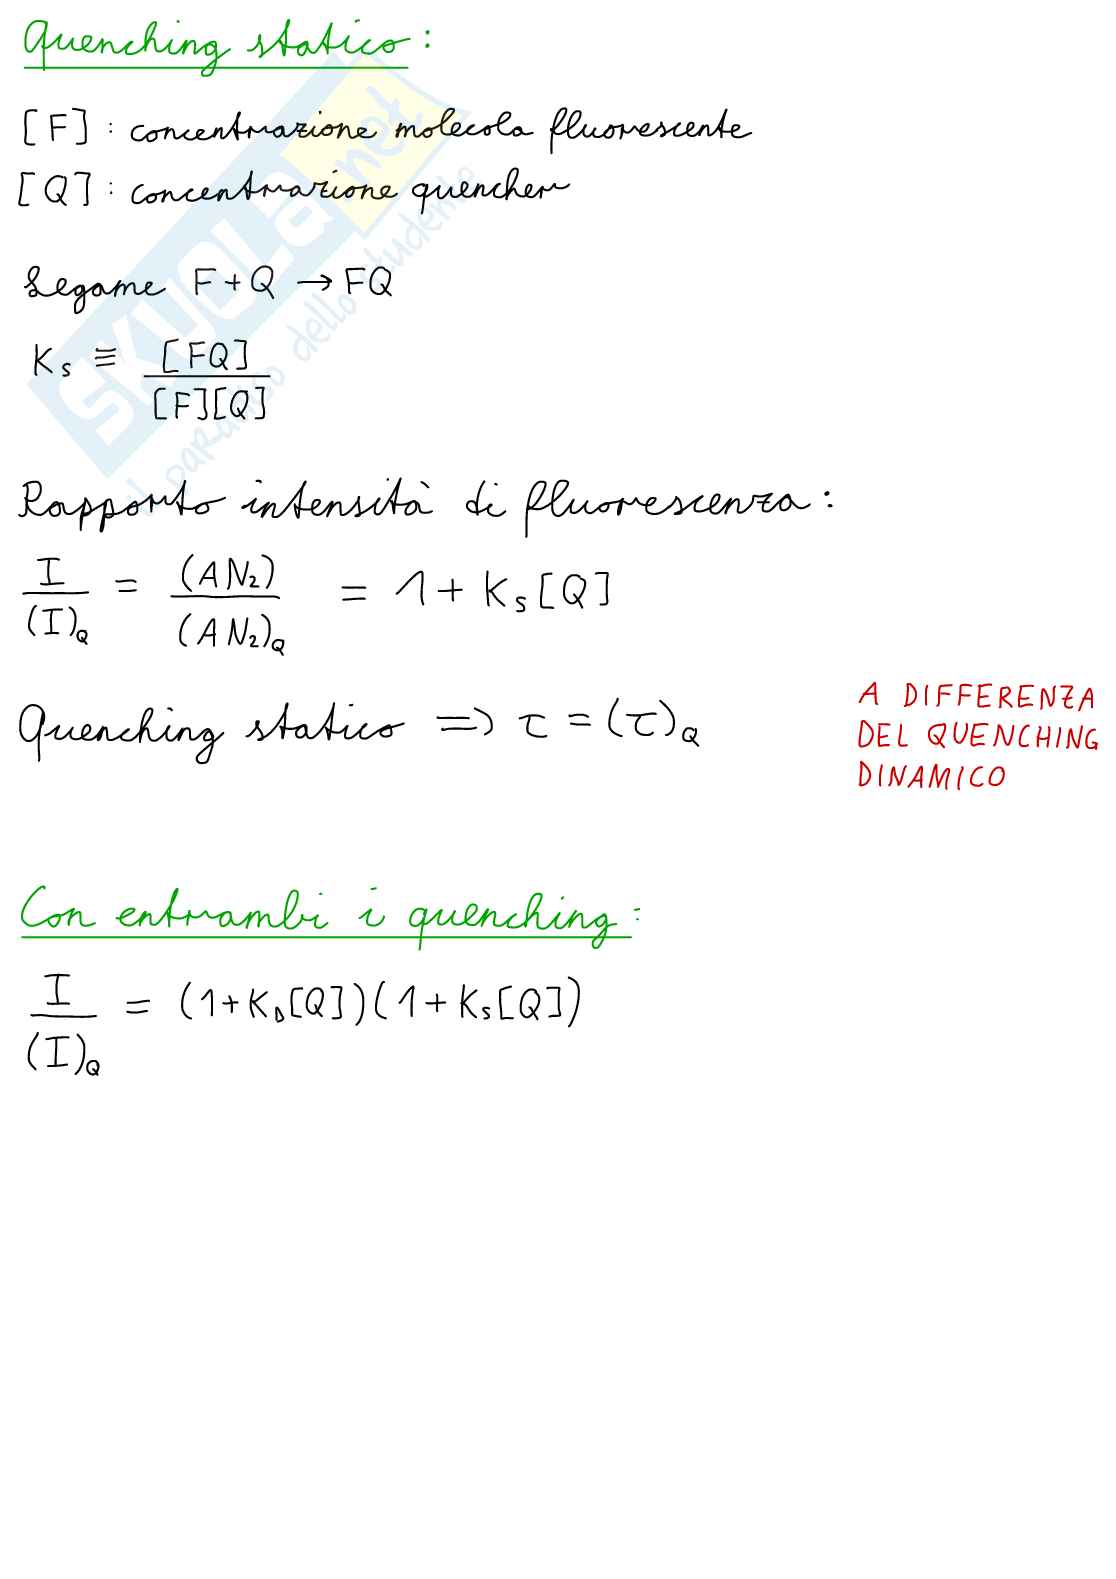 Quenching statico:
[F]: concentrazione molecola fluorescente
[Q]: concentrazione quencher
Legame F+Q → FQ
K_S ≡ [FQ] / [F][Q]
Rapporto intensità di fluorescenza:
I / (I)_Q = (AN_2) / (AN_2)_Q = 1 + K_S[Q]
Quenching statico => τ = (τ)_Q
A DIFFERENZA
DEL QUENCHING
DINAMICO
Con entrambi i quenching:
I / (I)_Q = (1+K_D[Q])(1+K_S[Q])
SKUOLA.net
il paradiso dello studente